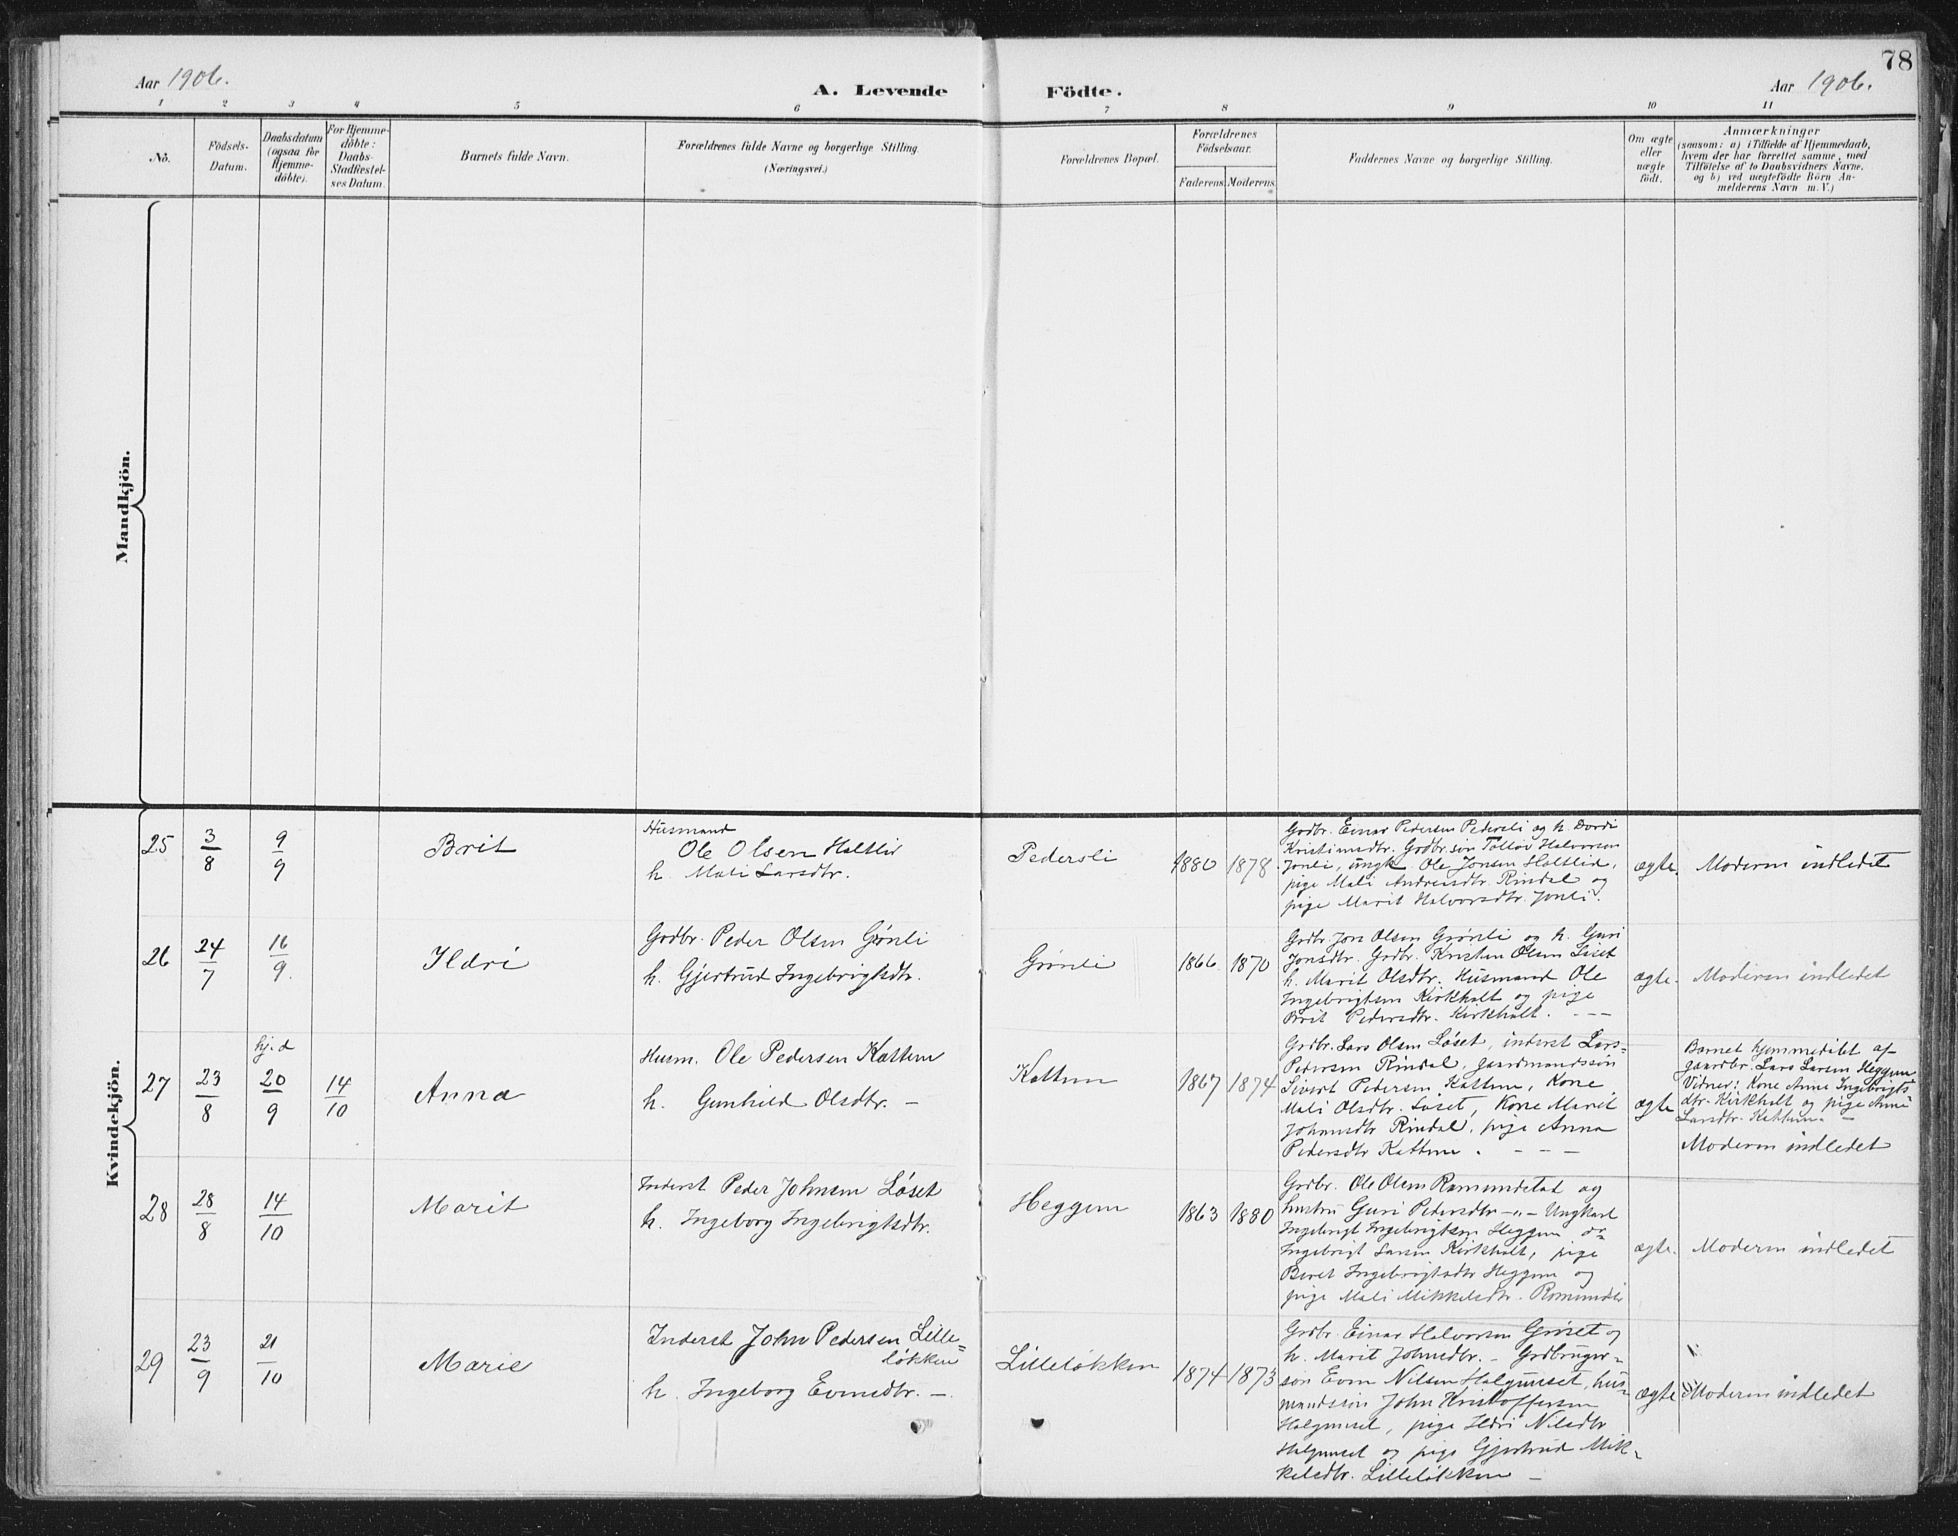 78
Aar 1906.
A. Levende Födte.
Aar 1906.
1 2 3 4 5 6 7 8 9 10 11
No.
Födsels-
Datum.
Daabsdatum
(ogsaa for
Hjemme-
döbte).
For Hjemme-
döbte:
Daabs-
Stadfæstel-
ses Datum.
Barnets fulde Navn.
Forældrenes fulde Navne og borgerlige Stilling.
(Næringsvei.)
Forældrenes Bopæl.
Forældrenes
Födselsaar.
Faderens. Moderens.
Faddernes Navne og borgerlige Stilling.
Om ægte
eller
uægte
födt.
Anmærkninger
(saasom: a) i Tilfælde af Hjemmedaab,
hvem der har forrettet samme, med
Tilföielse af to Daabsvidners Navne,
og b) ved uægtefödte Börn An-
melderens Navn m. V.)
Mandkjön.
Kvindekjön.
25
3/8
9/9
Brit
Husmand
Ole Olsen Holtlid
h. Mali Larsdtr.
Pedersli
1880 1878
Grdbr. Einar Pedersen Pedersli og h. Dordi
Kristiansdtr. Grdbr.søn Tollov Halvorsen
Jonli, ungk. Ole Jonsen Holtlid,
pige Mali Andreasdtr. Rindal og
pige Marit Halvorsdtr. Jonli.
ægte.
Moderen indledet
26
24/7
16/9.
Ildri
Grdbr. Peder Olsen Grønli
h. Gjertrud Ingebrigtsdtr.
Grønli
1866 1870
Grdbr. Jon Olsen Grønli og h. Guri
Jonsdtr. Grdbr. Kristen Olsen Liset
h. Marit Olsdtr. Husmand Ole
Ingebrigtsen Kirkholt og pige
Brit Pedersdtr. Kirkholt. - - -
ægte.
Moderen indledet
27
23/8
hj.d
20/9
14/10
Anna
Husm. Ole Pedersen Kattem
h. Gunhild Olsdtr. -
Kattem
1867 1874
Grdbr. Lars Olsen Løset, inderst Lars
Pedersen Rindal, gaardmandssøn
Sivert Pedersen Kattem, Kone
Mali Olsdtr. Løset, Kone Marit
Johnsdtr Rindal, pige Anna
Pedersdtr Kattem . - - -
ægte
Barnet hjemmedøbt af
gaardbr. Lars Larsen Heggem
Vidner: Kone Anne Ingebrigts
dtr. Kirkholt og pige Anne
Larsdtr. Kattem. -
Moderen indledet
28
28/8
14/10
Marit
Inderst Peder Johnsen Løset
h. Ingeborg Ingebrigtsdtr.
Heggem
1863 1880
Grdbr. Ole Olsen Romundstad og
hustru Guri Pedersdtr -"- Ungkarl
Ingebrigt Ingebrigtsen Heggem do
Ingebrigt Larsen Kirkholt, pige
Beret Ingebrigtsdtr Heggem og
pige Mali Mikkelsdtr.
ægte.
Moderen indledet
29
23/9
21/10
Marie
Inderst John Pedersen Lille-
løkken
h. Ingeborg Evensdtr. -
Lilleløkken
1874 1873
Grdbr. Einar Halvorsen Grøset og
h. Marit Johnsdtr. - Grdbruger-
søn Even Nilsen Halgunset, hus-
mandssøn John Kristoffersen
Halgunset, pige Ildri Nilsdtr
Halgunset og pige Gjertrud Mik-
kelsdtr. Lilleløkken -
ægte
Moderen indledet